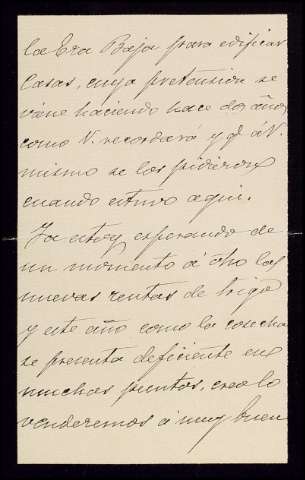 la Era Baja para edificar
Casas, cuya pretension se
viene haciendo hace dos años
como V. recordará y qe á V.
mismo se los pidieron
cuando estuvo aquí.
Ya estoy esperando de
un momento á otro las
nuevas rentas de trigo
y este año como la cosecha
se presenta deficiente en
muchos puntos, creo lo
venderemos á muy buen